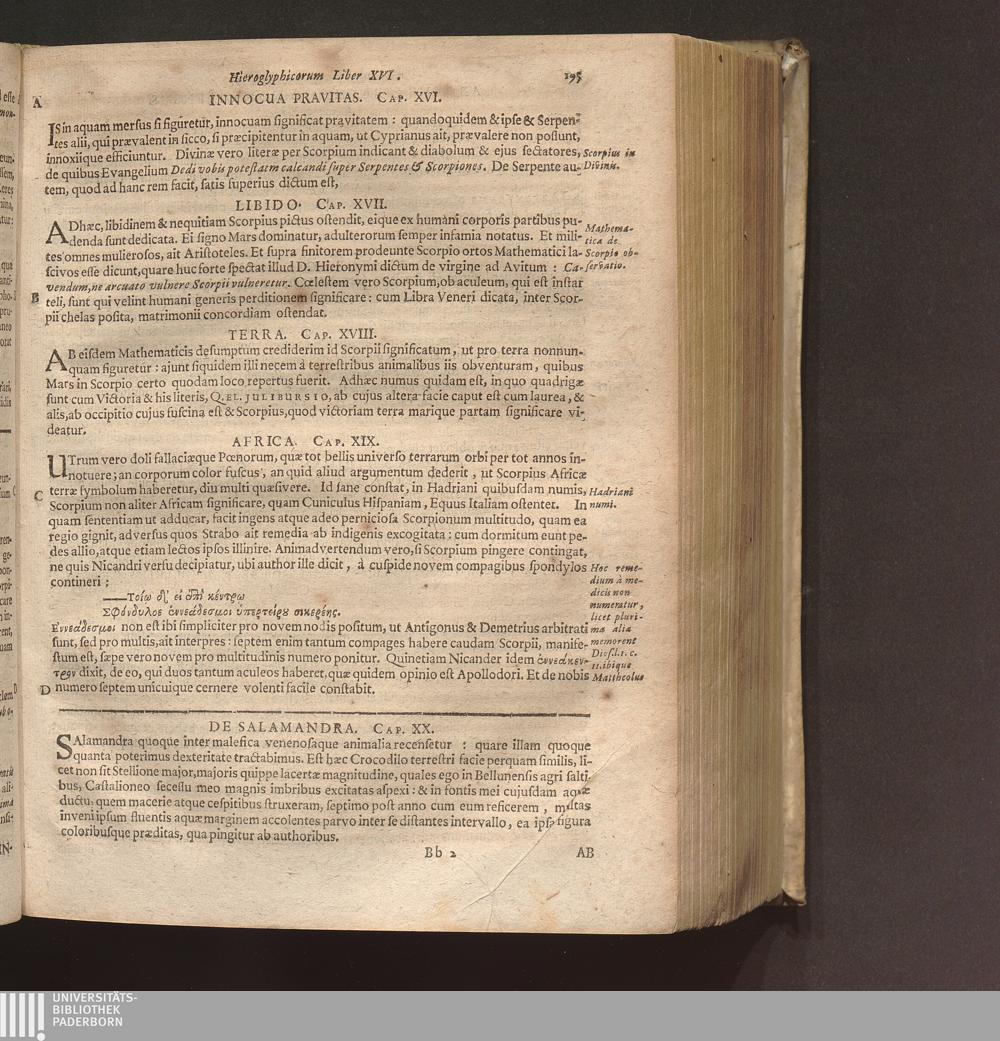 Hieroglyphicorum Liber XVI. 195
A
INNOCUA PRAVITAS. CAP. XVI.
IS in aquam mersus si figuretur, innocuam significat pravitatem : quandoquidem & ipse & Serpen-
tes alii, qui prævalent in sicco, si præcipitentur in aquam, ut Cyprianus ait, prævalere non possunt,
innoxiique efficiuntur. Divinæ vero literæ per Scorpium indicant & diabolum & ejus sectatores, Scorpius in
de quibus Evangelium Dedi vobis potestatem calcandi super Serpentes & Scorpiones. De Serpente au- Divinis.
tem, quod ad hanc rem facit, satis superius dictum est,
LIBIDO. CAP. XVII.
ADhæc, libidinem & nequitiam Scorpius pictus ostendit, eique ex humani corporis partibus pu-
denda sunt dedicata. Ei signo Mars dominatur, adulterorum semper infamia notatus. Et mili-
tes omnes mulierosos, ait Aristoteles. Et supra finitorem prodeunte Scorpio ortos Mathematici la-
scivos esse dicunt, quare huc forte spectat illud D. Hieronymi dictum de virgine ad Avitum : Ca-
vendum, ne arcuato vulnere Scorpii vulneretur. Cœlestem vero Scorpium, ob aculeum, qui est instar
B teli, sunt qui velint humani generis perditionem significare: cum Libra Veneri dicata, inter Scor-
pii chelas posita, matrimonii concordiam ostendat.
Mathema-
tica de
Scorpio ob-
servatio.
TERRA. CAP. XVIII.
AB eisdem Mathematicis desumptum crediderim id Scorpii significatum, ut pro terra nonnun-
quam figuretur : ajunt siquidem illi necem à terrestribus animalibus iis obventuram, quibus
Mars in Scorpio certo quodam loco repertus fuerit. Adhæc numus quidam est, in quo quadrigæ
sunt cum Victoria & his literis, Q. EL. JULIBURSIO, ab cujus altera facie caput est cum laurea, &
alis, ab occipitio cujus fuscina est & Scorpius, quod victoriam terra marique partam significare vi-
deatur.
AFRICA. CAP. XIX.
UTrum vero doli fallaciæque Pœnorum, quæ tot bellis universo terrarum orbi per tot annos in-
notuere; an corporum color fuscus, an quid aliud argumentum dederit, ut Scorpius Africæ
C terræ symbolum haberetur, diu multi quæsivere. Id sane constat, in Hadriani quibusdam numis, Hadriani
Scorpium non aliter Africam significare, quam Cuniculus Hispaniam, Equus Italiam ostentet. In numi.
quam sententiam ut adducar, facit ingens atque adeo perniciosa Scorpionum multitudo, quam ea
regio gignit, adversus quos Strabo ait remedia ab indigenis excogitata : cum dormitum eunt pe-
des allio, atque etiam lectos ipsos illinire. Animadvertendum vero, si Scorpium pingere contingat,
ne quis Nicandri versu decipiatur, ubi author ille dicit, à cuspide novem compagibus spondylos
contineri ;
—Τοίῳ δι' εἰ ἐπὶ κέντρῳ
Σφόνδυλοε ἐννεάδεσμοι ὑπερτείρȣ σικερέης.
Εννεάδεσμοι non est ibi simpliciter pro novem nodis positum, ut Antigonus & Demetrius arbitrati
sunt, sed pro multis, ait interpres : septem enim tantum compages habere caudam Scorpii, manife-
stum est, sæpe vero novem pro multitudinis numero ponitur. Quinetiam Nicander idem ἐννεάκεν-
τρον dixit, de eo, qui duos tantum aculeos haberet, quæ quidem opinio est Apollodori. Et de nobis
D numero septem unicuique cernere volenti facile constabit.
Hoc reme-
dium à me-
dicis non
numeratur,
licet pluri-
ma alia
memorent
Dios. l. 1. c.
11. ibique
Matthcolus
DE SALAMANDRA. CAP. XX.
SAlamandra quoque inter malefica venenosaque animalia recensetur : quare illam quoque
quanta poterimus dexteritate tractabimus. Est hæc Crocodilo terrestri facie perquam similis, li-
cet non sit Stellione major, majoris quippe lacertæ magnitudine, quales ego in Bellunensis agri salti-
bus, Castalioneo secessu meo magnis imbribus excitatas aspexi : & in fontis mei cujusdam aquæ
ductu, quem macerie atque cespitibus struxeram, septimo post anno cum eum reficerem, multas
inveni ipsum fluentis aquæ marginem accolentes parvo inter se distantes intervallo, ea ipsa figura
coloribusque præditas, qua pingitur ab authoribus.
Bb 2 AB
UNIVERSITÄTS-
BIBLIOTHEK
PADERBORN